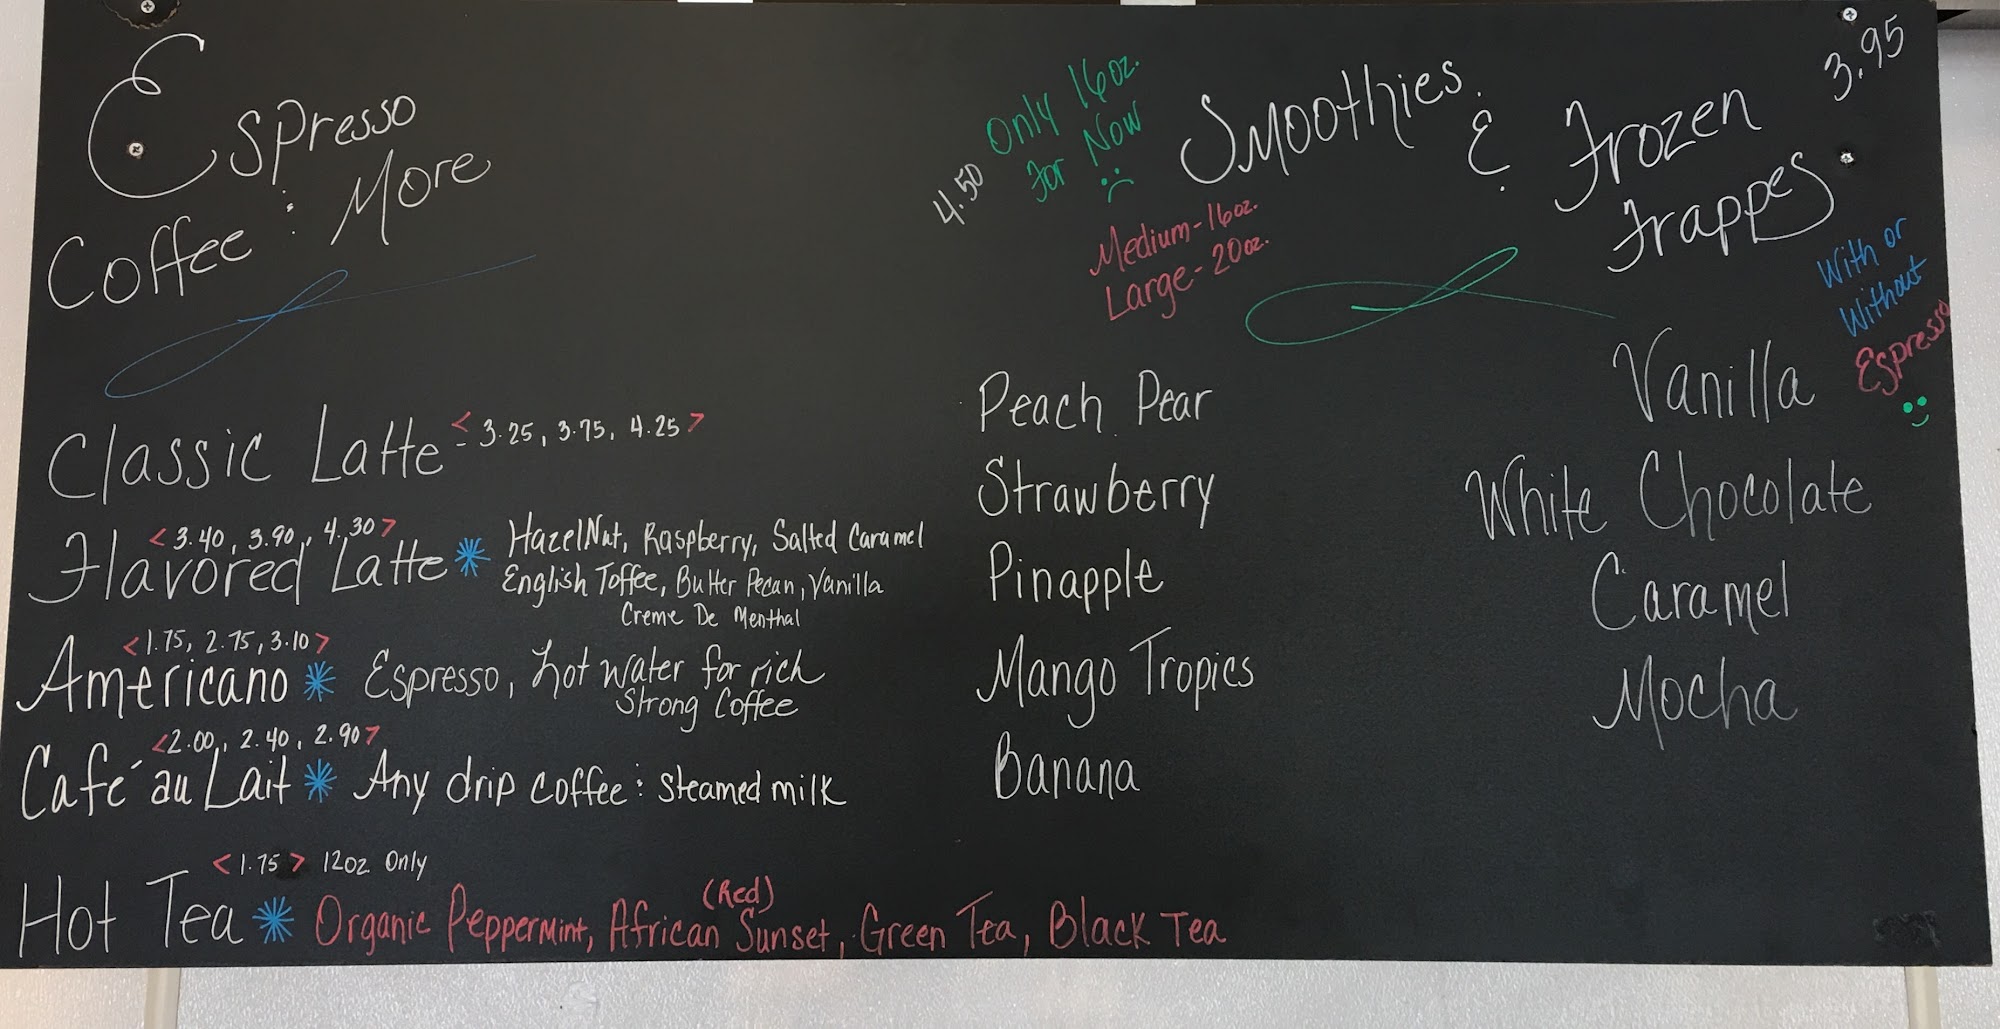 Espresso
Coffee & More
Classic Latte - < 3.25, 3.75, 4.25 >
< 3.40, 3.90, 4.30 >
Flavored Latte * HazelNut, Raspberry, Salted Caramel
English Toffee, Butter Pecan, Vanilla
Creme De Menthal
< 1.75, 2.75, 3.10 >
Americano * Espresso, hot water for rich
Strong Coffee
< 2.00, 2.40, 2.90 >
Café au Lait * Any drip coffee & steamed milk
< 1.75 > 12oz Only
Hot Tea * Organic Peppermint, African (Red) Sunset, Green Tea, Black Tea
4.50
Only 16oz.
for Now
Medium - 16oz.
Large - 20oz.
Smoothies
& Frozen
Frappes
3.95
With or
Without
Espresso
Peach Pear
Strawberry
Pinapple
Mango Tropics
Banana
Vanilla
White Chocolate
Caramel
Mocha